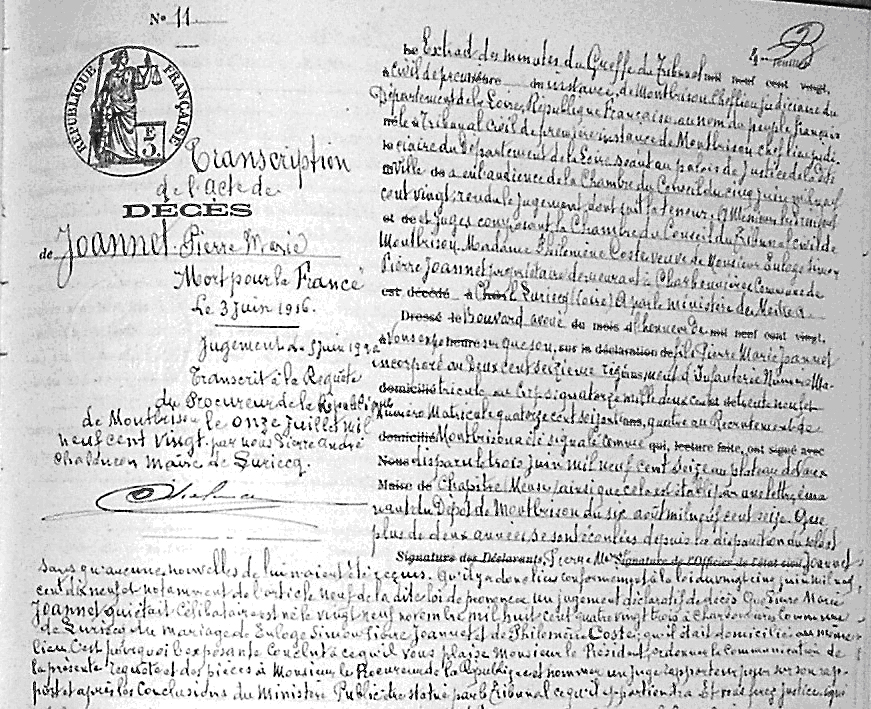 N° 11
RÉPUBLIQUE FRANÇAISE
E
3.
Transcription
de l'acte de
DÉCÈS
de Joannet Pierre Marie
Mort pour la France
Le 3 juin 1916.
Jugement du 5 juin 1920
Transcrit à la Requête
du Procureur de la République
de Montbrison le onze juillet mil
neuf cent vingt par nous Pierre André
Chalencon Maire de Luriecq.
4
feuillet
Extrait des minutes du Greffe du Tribunal mil neuf cent vingt,
à Civil de première instance, de Montbrison, Chef lieu judiciaire du
Département de la Loire, République Française, au nom du peuple français
Le Tribunal Civil de première instance de Montbrison chef lieu judi-
ciaire du Département de la Loire séant au palais de Justice de la dite
Ville a en l'audience de la Chambre du Conseil du cinq juin mil neuf
cent vingt; rendu le jugement dont suit la teneur. A Messieurs les Président
et Juges composant la Chambre du Conseil du Tribunal civil de
Montbrison. Madame Philomène Coste veuve de Monsieur Euloge Siméon
Pierre Joannet propriétaire demeurant à Commune de
est décédé à Luriecq (Loire) A par le ministère de Me
Dressé le Bouvard avoué du mois d'honneur de mil neuf cent vingt,
à Vous exposer heure sur que son, sur la déclaration de fils Pierre Marie Joannet
incorporé au Deux cent seizième régiment d'Infanterie Numéro Ma-
domicilié tricule au Corps quatorze mille deux cent trente neuf et
Numéro Matricule quatorze cent soixante ans, quatre au Recrutement de
domicilié Montbrison a été signalé comme qui, lecture faite, ont signé avec
Nous disparu le trois juin mil neuf cent seize au plateau de Vaux
Maire de Chapitre (Meuse) ainsi que cela est établi par une lettre éma
nant du Dépôt de Montbrison du six août mil neuf cent seize. Que
plus de deux années se sont écoulées depuis la disparition du soldat
Signature des Déclarants, Pierre Mie Signature de l'Officier de l'état civil, Joannet
sans qu'aucune nouvelles de lui n'aient été reçues. Qu'il y a donc lieu conformément à la loi du vingt cinq juin mil neuf
cent dix neuf et notamment de l'article neuf de la dite loi de prononcer un jugement déclaratif de décès. Que Pierre Marie
Joannet qui était Célibataire est né le vingt neuf novembre mil huit cent quatre vingt trois à commune
de Luriecq du mariage de Euloge Siméon Pierre Joannet et de Philomène Coste; qu'il était domicilié au même
lieu. C'est pourquoi l'exposante Conclut à ce qu'il vous plaise Monsieur le Président, ordonner la Communication de
la présente requête et des pièces à Monsieur le Procureur de la République et nommer un juge rapporteur pour sur son rap-
port et après les Conclusions du Ministère Public être statué par le Tribunal ce qu'il appartiendra Et vous ferez justice.